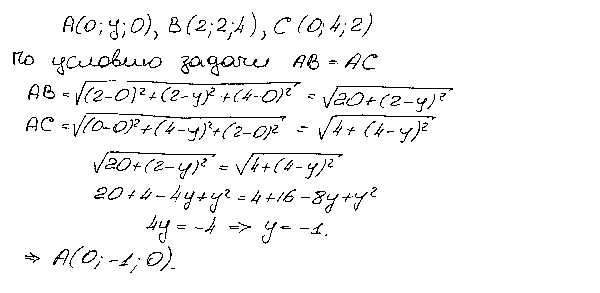 A(0; y; 0), B(2; 2; 4), C(0; 4; 2)
По условию задачи AB = AC
AB = √((2-0)²+(2-y)²+(4-0)²) = √(20+(2-y)²)
AC = √((0-0)²+(4-y)²+(2-0)²) = √(4+(4-y)²)
√(20+(2-y)²) = √(4+(4-y)²)
20+4-4y+y² = 4+16-8y+y²
4y = -4 ⇒ y = -1.
⇒ A(0; -1; 0).